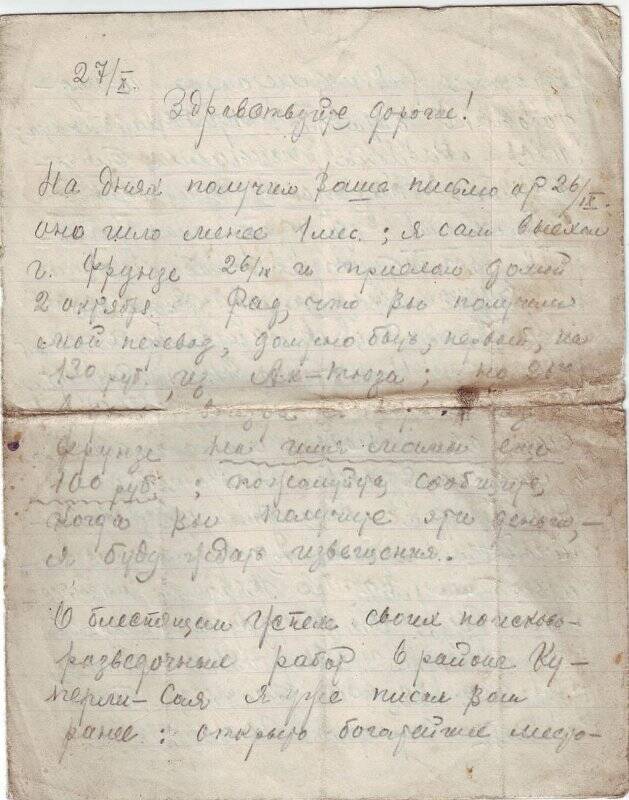 27/X.
Здравствуйте дорогие!
На днях получил Ваше письмо от 26/IX.
оно шло менее 1 мес.; я сам выехал
г. Фрунзе 26/IX и приехал домой
2 октября. Рад, что вы получили
мой перевод, должно быть, первый, на
130 руб. из Ак-Тюза; но
Фрунзе на имя мамы еще
100 руб.; пожалуйста, сообщите,
когда вы получите эти деньги, –
я буду ждать извещения.
О блестящем успехе своих поисково-
разведочных работ в районе Ку-
перли-Сая я уже писал Вам
ранее: открыто богатейшее место-